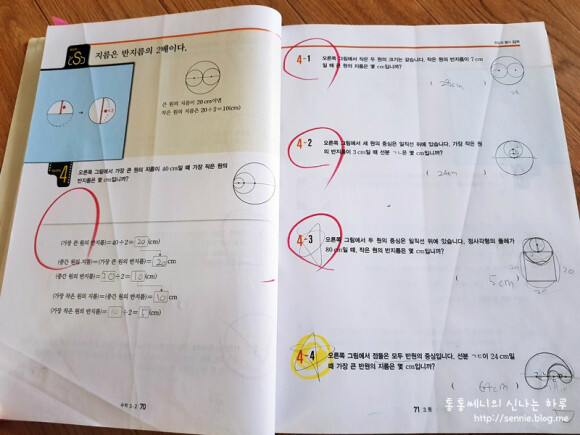 지름은 반지름의 2배이다.
큰 원의 지름이 20 cm이면
작은 원의 지름은 20÷2=10(cm)
4
오른쪽 그림에서 가장 큰 원의 지름이 40 cm일 때 가장 작은 원의
반지름은 몇 cm입니까?
(가장 큰 원의 반지름)=40÷2=20(cm)
(중간 원의 지름)=(가장 큰 원의 반지름)=20cm
(중간 원의 반지름)=20÷2=10(cm)
(가장 작은 원의 지름)=(중간 원의 반지름)=10cm
(가장 작은 원의 반지름)=10÷2=5(cm)
수학 3-2 70
4-1 오른쪽 그림에서 작은 두 원의 크기는 같습니다. 작은 원의 반지름이 7 cm
일 때 큰 원의 지름은 몇 cm입니까?
( 28cm )
4-2 오른쪽 그림에서 세 원의 중심은 일직선 위에 있습니다. 가장 작은 원
의 반지름이 3 cm일 때 선분 ㄱㄴ은 몇 cm입니까?
( 24cm )
4-3 오른쪽 그림에서 두 원의 중심은 일직선 위에 있습니다. 정사각형의 둘레가
80 cm일 때, 작은 원의 반지름은 몇 cm입니까?
( 5cm )
20
4-4 오른쪽 그림에서 점들은 모두 반원의 중심입니다. 선분 ㄱㄷ이 24 cm일
때 가장 큰 반원의 지름은 몇 cm입니까?
( 64cm )
71 3. 원
통통쎄니의 신나는 하루
http://sennie.blog.me